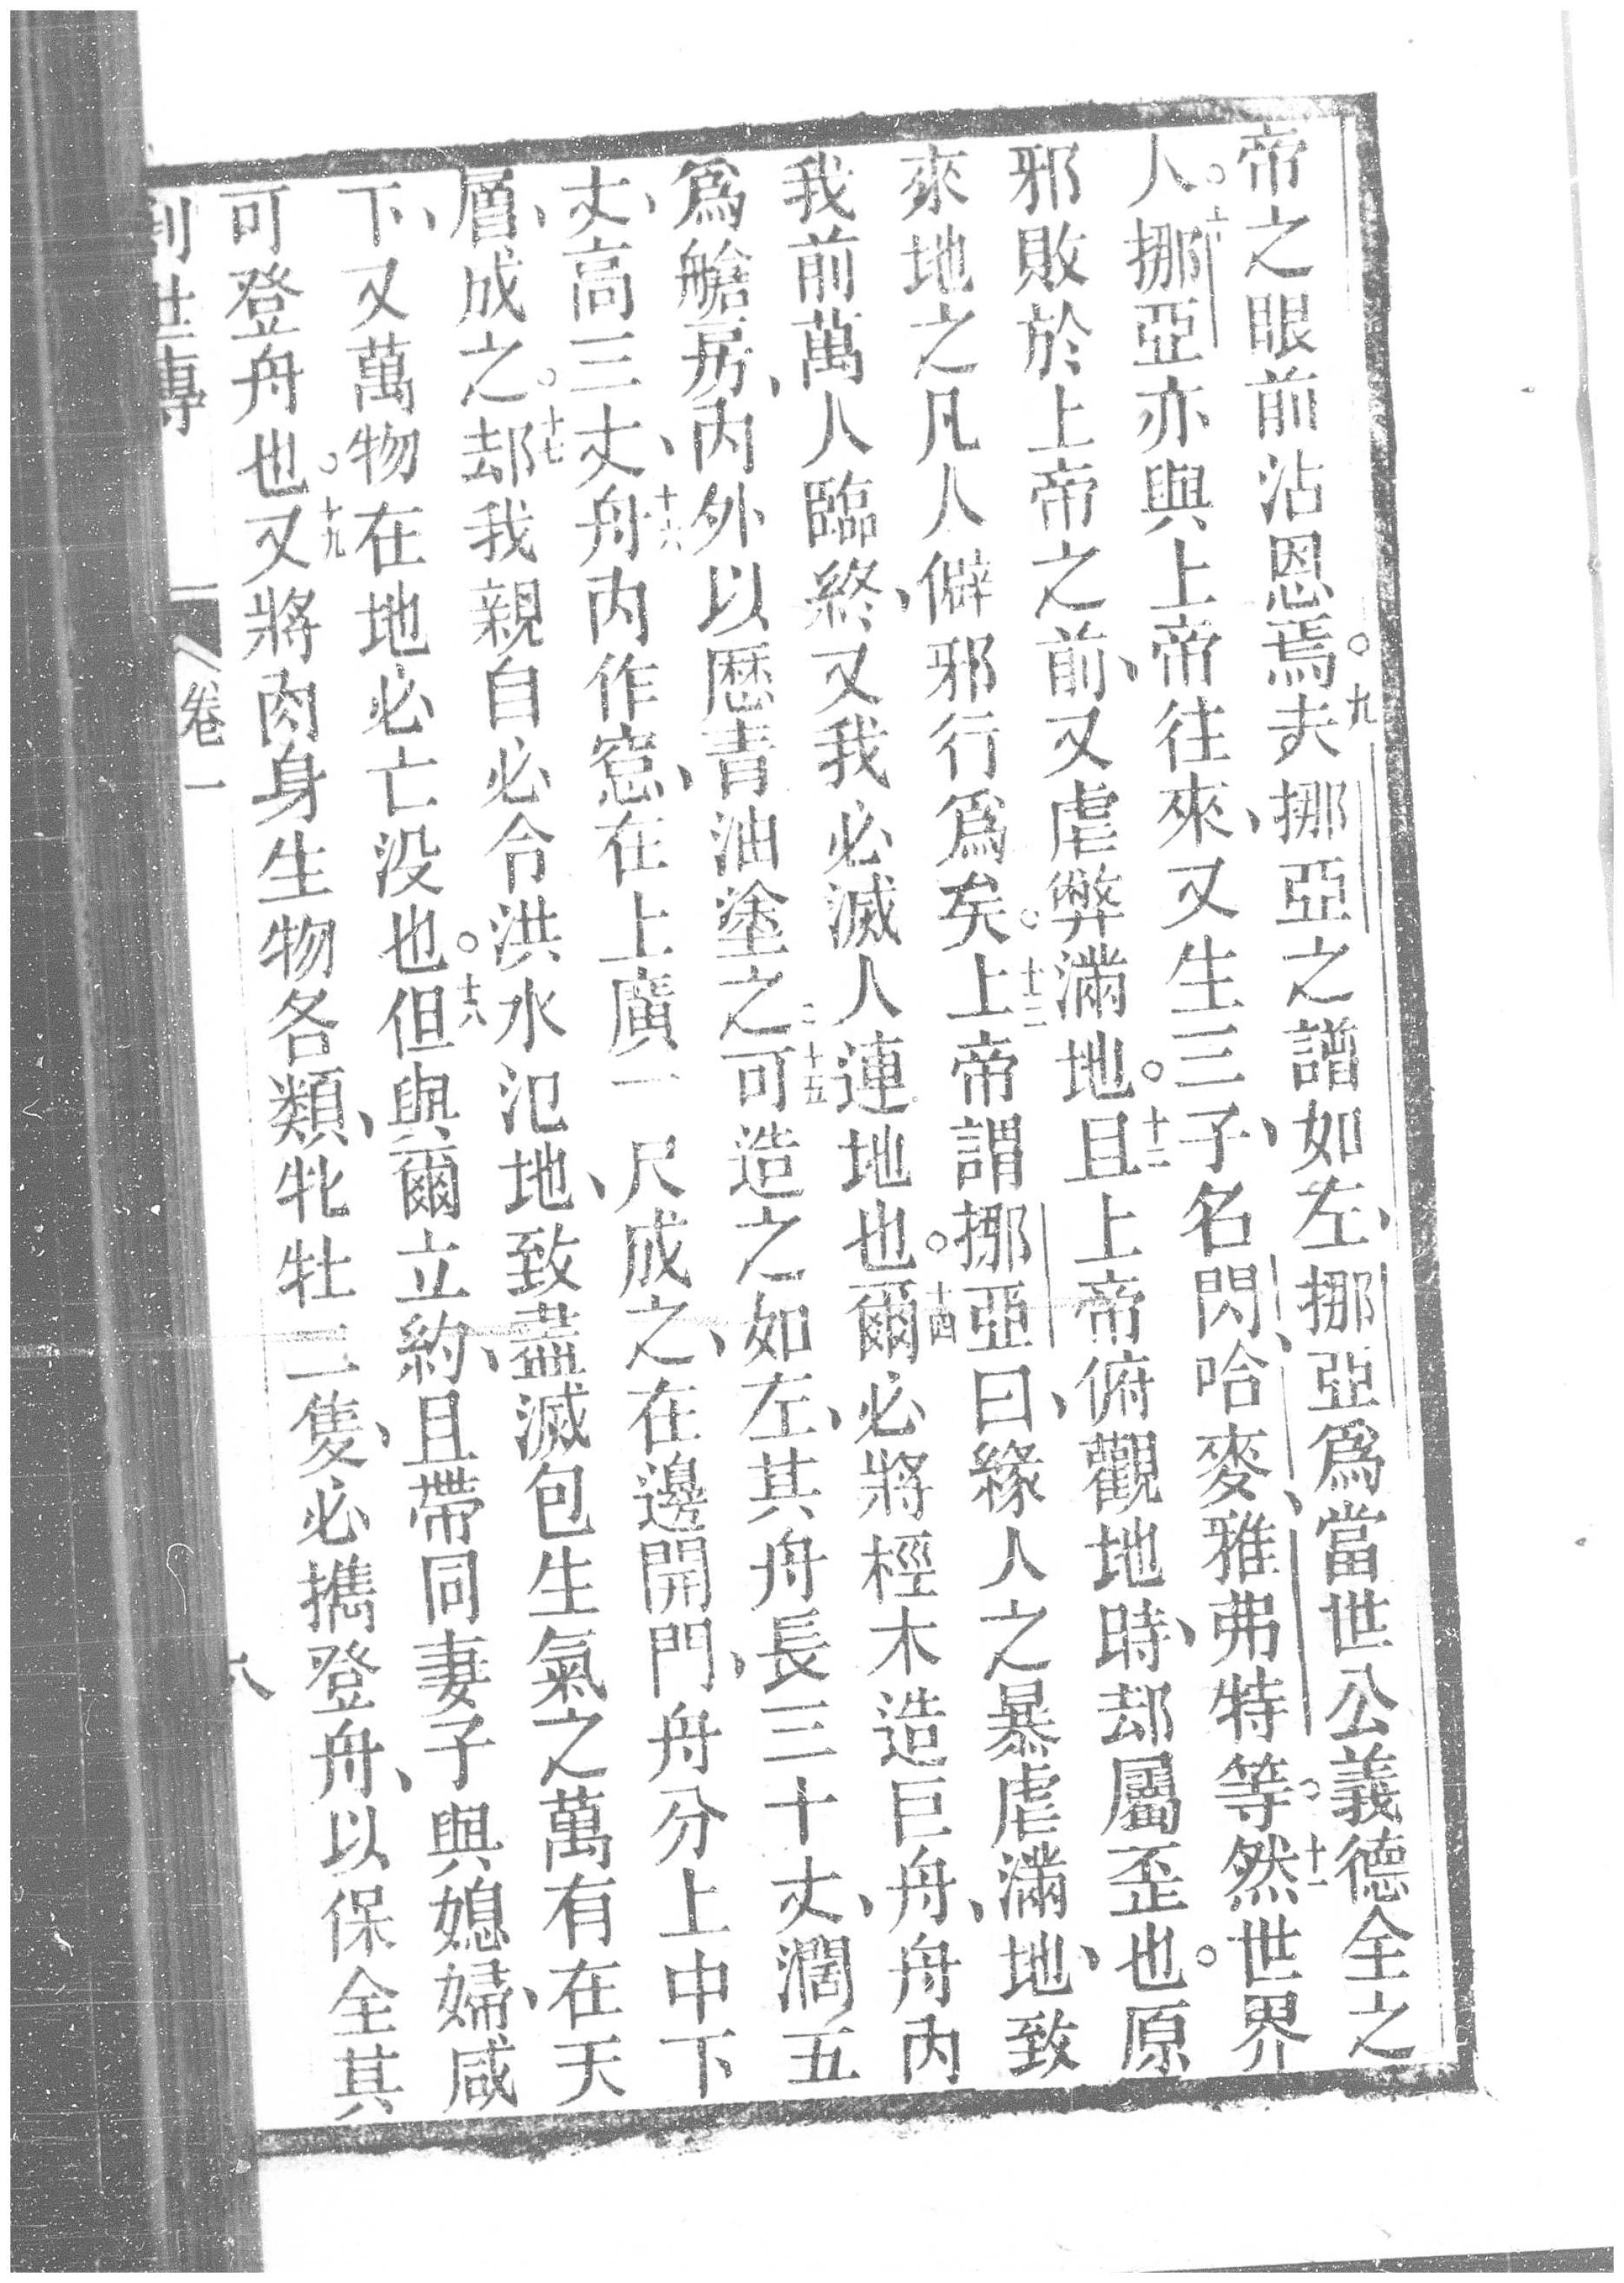 帝之眼前沾恩焉。九夫挪亞之譜如左、挪亞爲當世公義德全之
人。十挪亞亦與上帝往來、又生三子、名閃、哈麥、雅弗特等。十一然世界
邪敗於上帝之前、又虐弊滿地。十二且上帝俯觀地時、却屬歪也。原
來地之凡人僻邪行爲矣。十三上帝謂挪亞曰、緣人之暴虐滿地、致
我前萬人臨終、又我必滅人連地也。十四爾必將桱木造巨舟、舟內
爲艙房、內外以厯青油塗之。十五可造之如左、其舟長三十丈、濶五
丈、高三丈、十六舟內作窓、在上廣一尺成之、在邊開門、舟分上中下
層、成之。十七却我親自必令洪水氾地、致盡滅包生氣之萬有在天
下、又萬物在地必亡没也。十八但與爾立約、且帶同妻子與媳婦、咸
可登舟也。十九又將肉身生物各類、牝牡二隻、必擕登舟、以保全其
創世傳 卷一 八